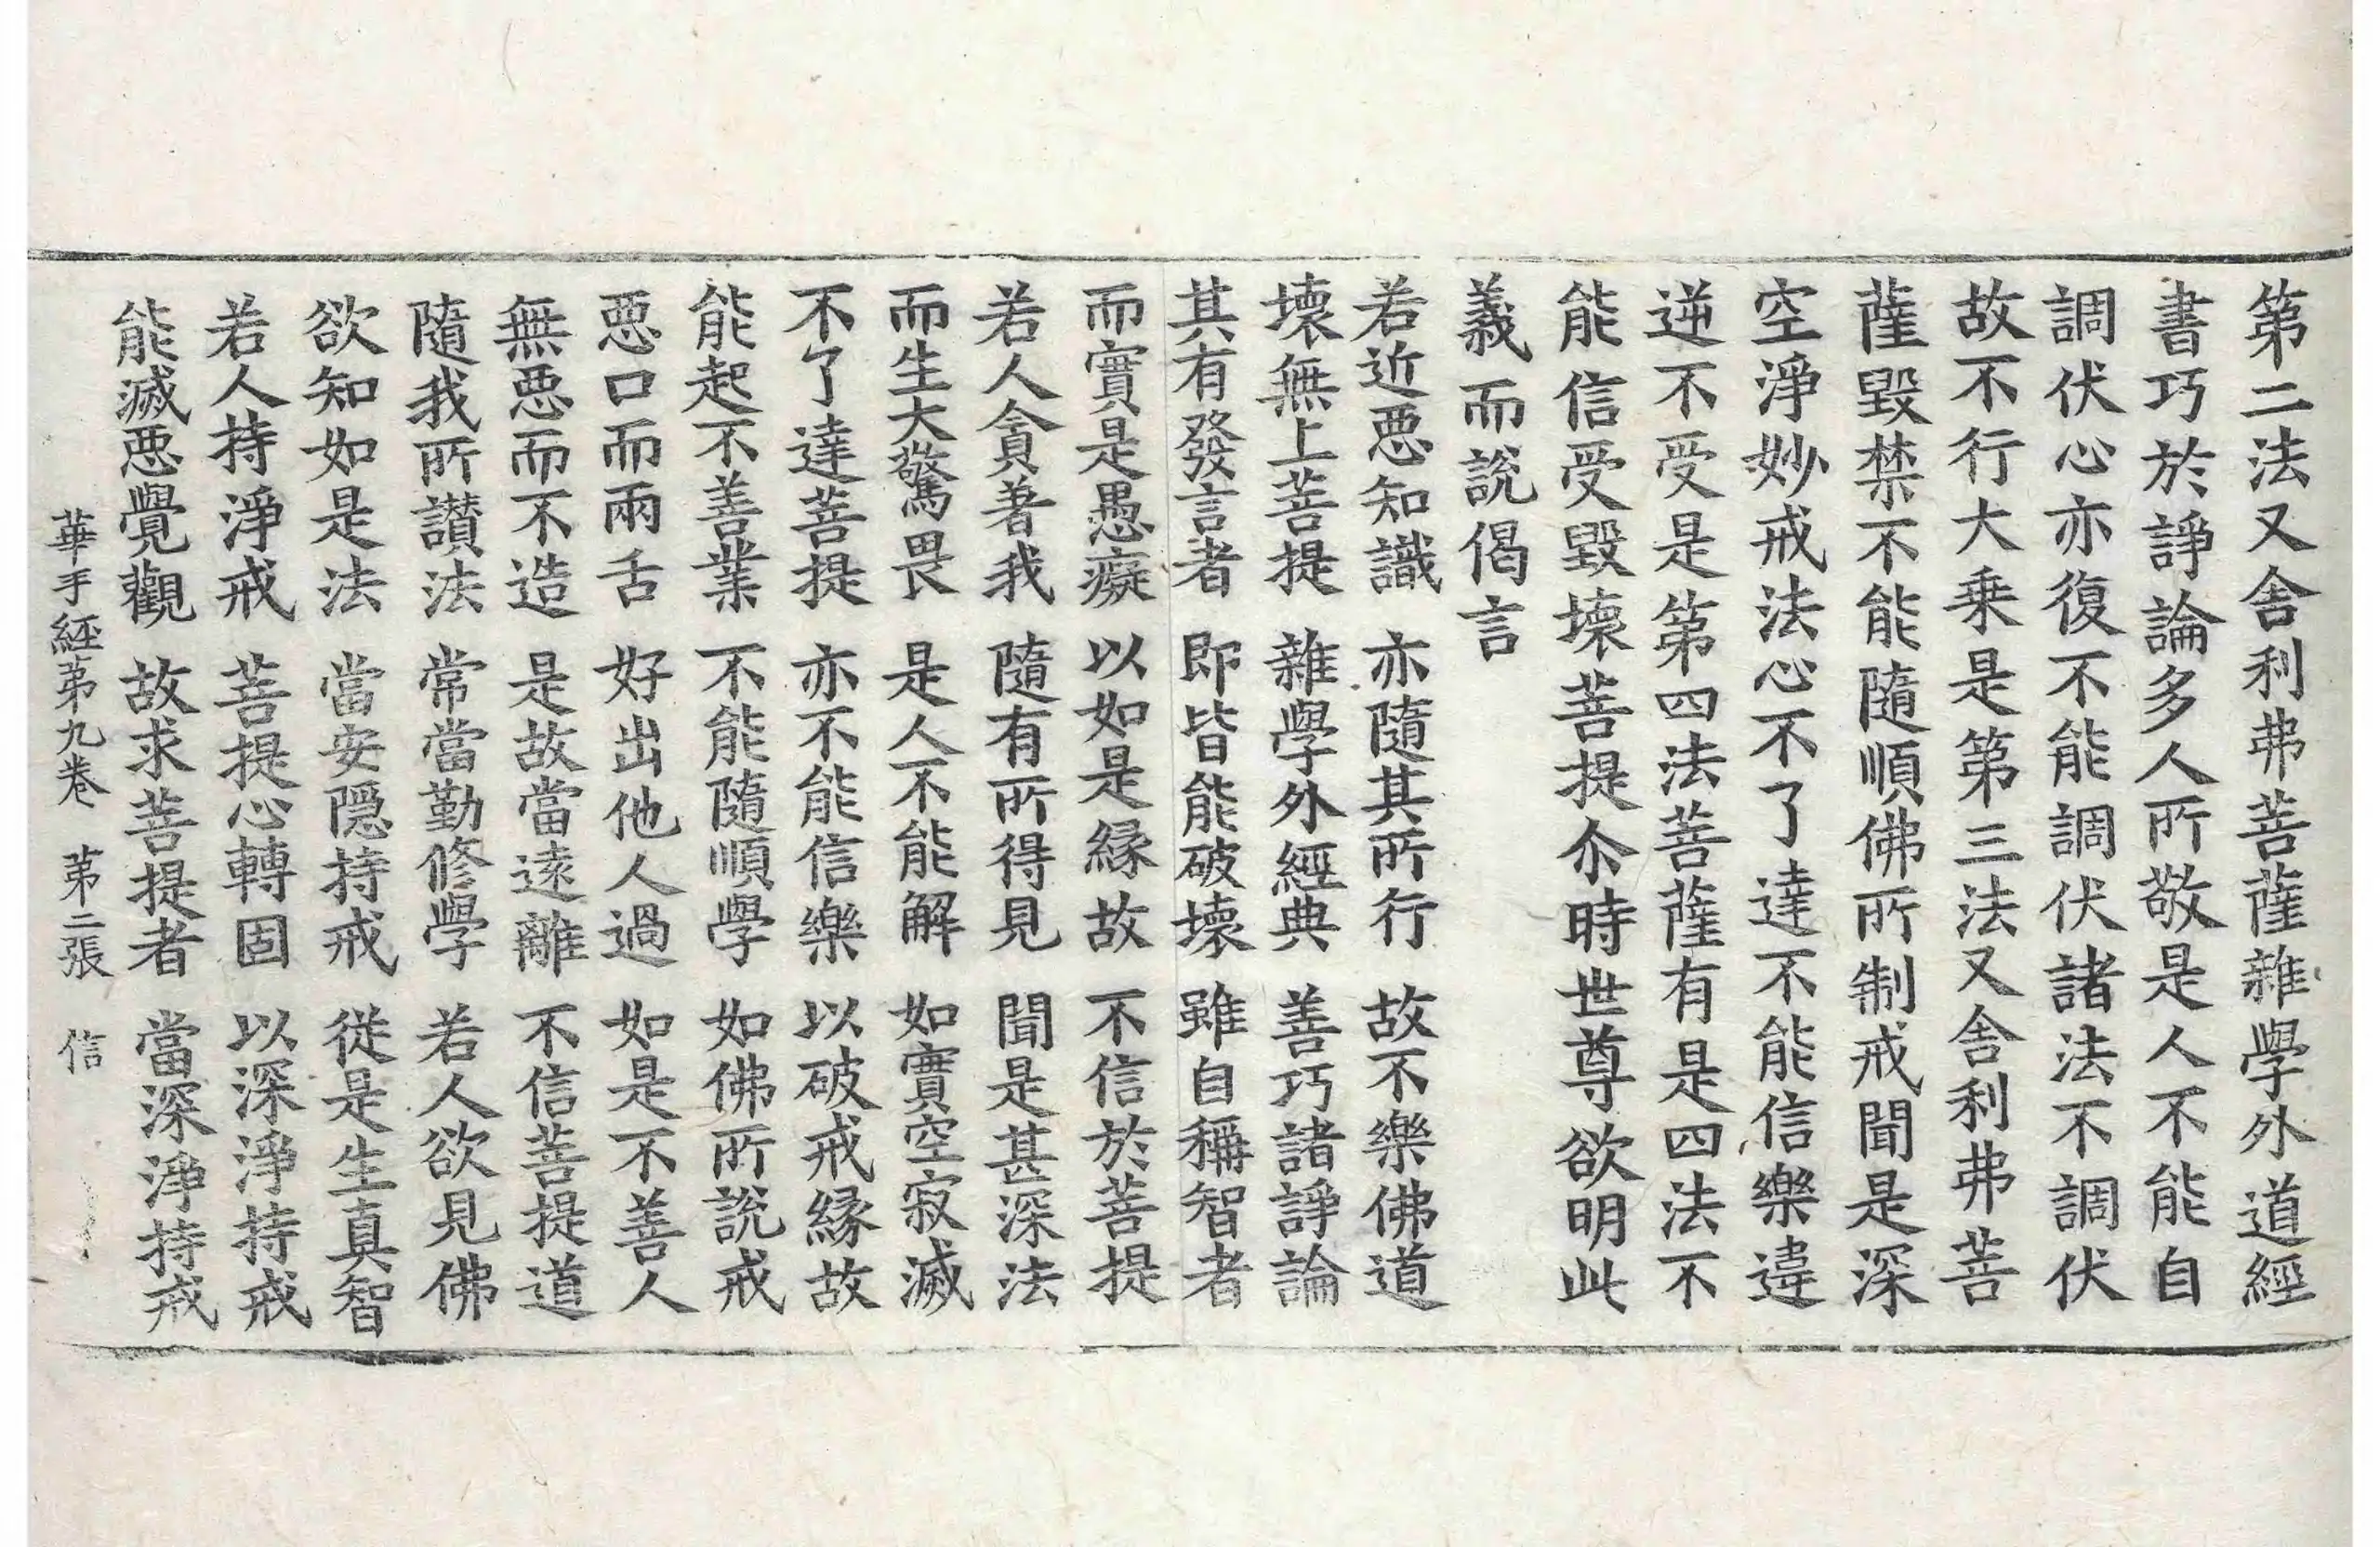 第二法又舍利弗菩薩雜學外道經
書巧於諍論多人所敬是人不能自
調伏心亦復不能調伏諸法不調伏
故不行大乗是第三法又舍利弗菩
薩毀禁不能隨順佛所制戒聞是深
空淨妙戒法心不了達不能信樂違
逆不受是第四法菩薩有是四法不
能信受毀壞菩提尒時世尊欲明此
義而說偈言
若近惡知識 亦隨其所行 故不樂佛道
壞無上菩提 雜學外經典 善巧諸諍論
其有發言者 即皆能破壞 雖自稱智者
而實是愚癡 以如是縁故 不信於菩提
若人貪著我 隨有所得見 聞是甚深法
而生大驚畏 是人不能解 如實空寂滅
不了達菩提 亦不能信樂 以破戒縁故
能起不善業 不能隨順學 如佛所說戒
惡口而兩舌 好出他人過 如是不善人
無惡而不造 是故當遠離 不信菩提道
隨我所讃法 常當勤修學 若人欲見佛
欲知如是法 當安隠持戒 從是生真智
若人持淨戒 菩提心轉固 以深淨持戒
能滅惡覺觀 故求菩提者 當深淨持戒
華手經第九巻 第二張 信